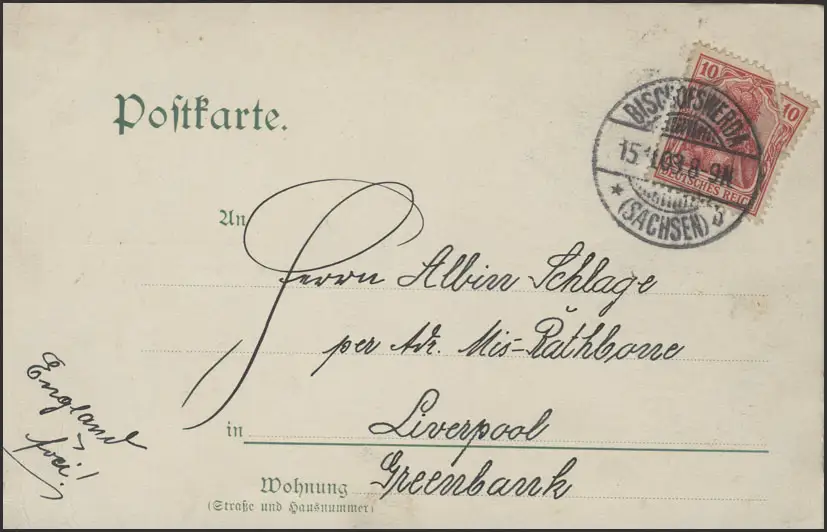 Postkarte.
10 10
DEUTSCHES REICH
BISCHOFSWERDA
15.11.03. 8-9N.
* (SACHSEN) b
An
Herrn Albin Schlage
per Adr. Mis-Rathbone
in Liverpool
Wohnung Greenbank
(Straße und Hausnummer)
England
frei!